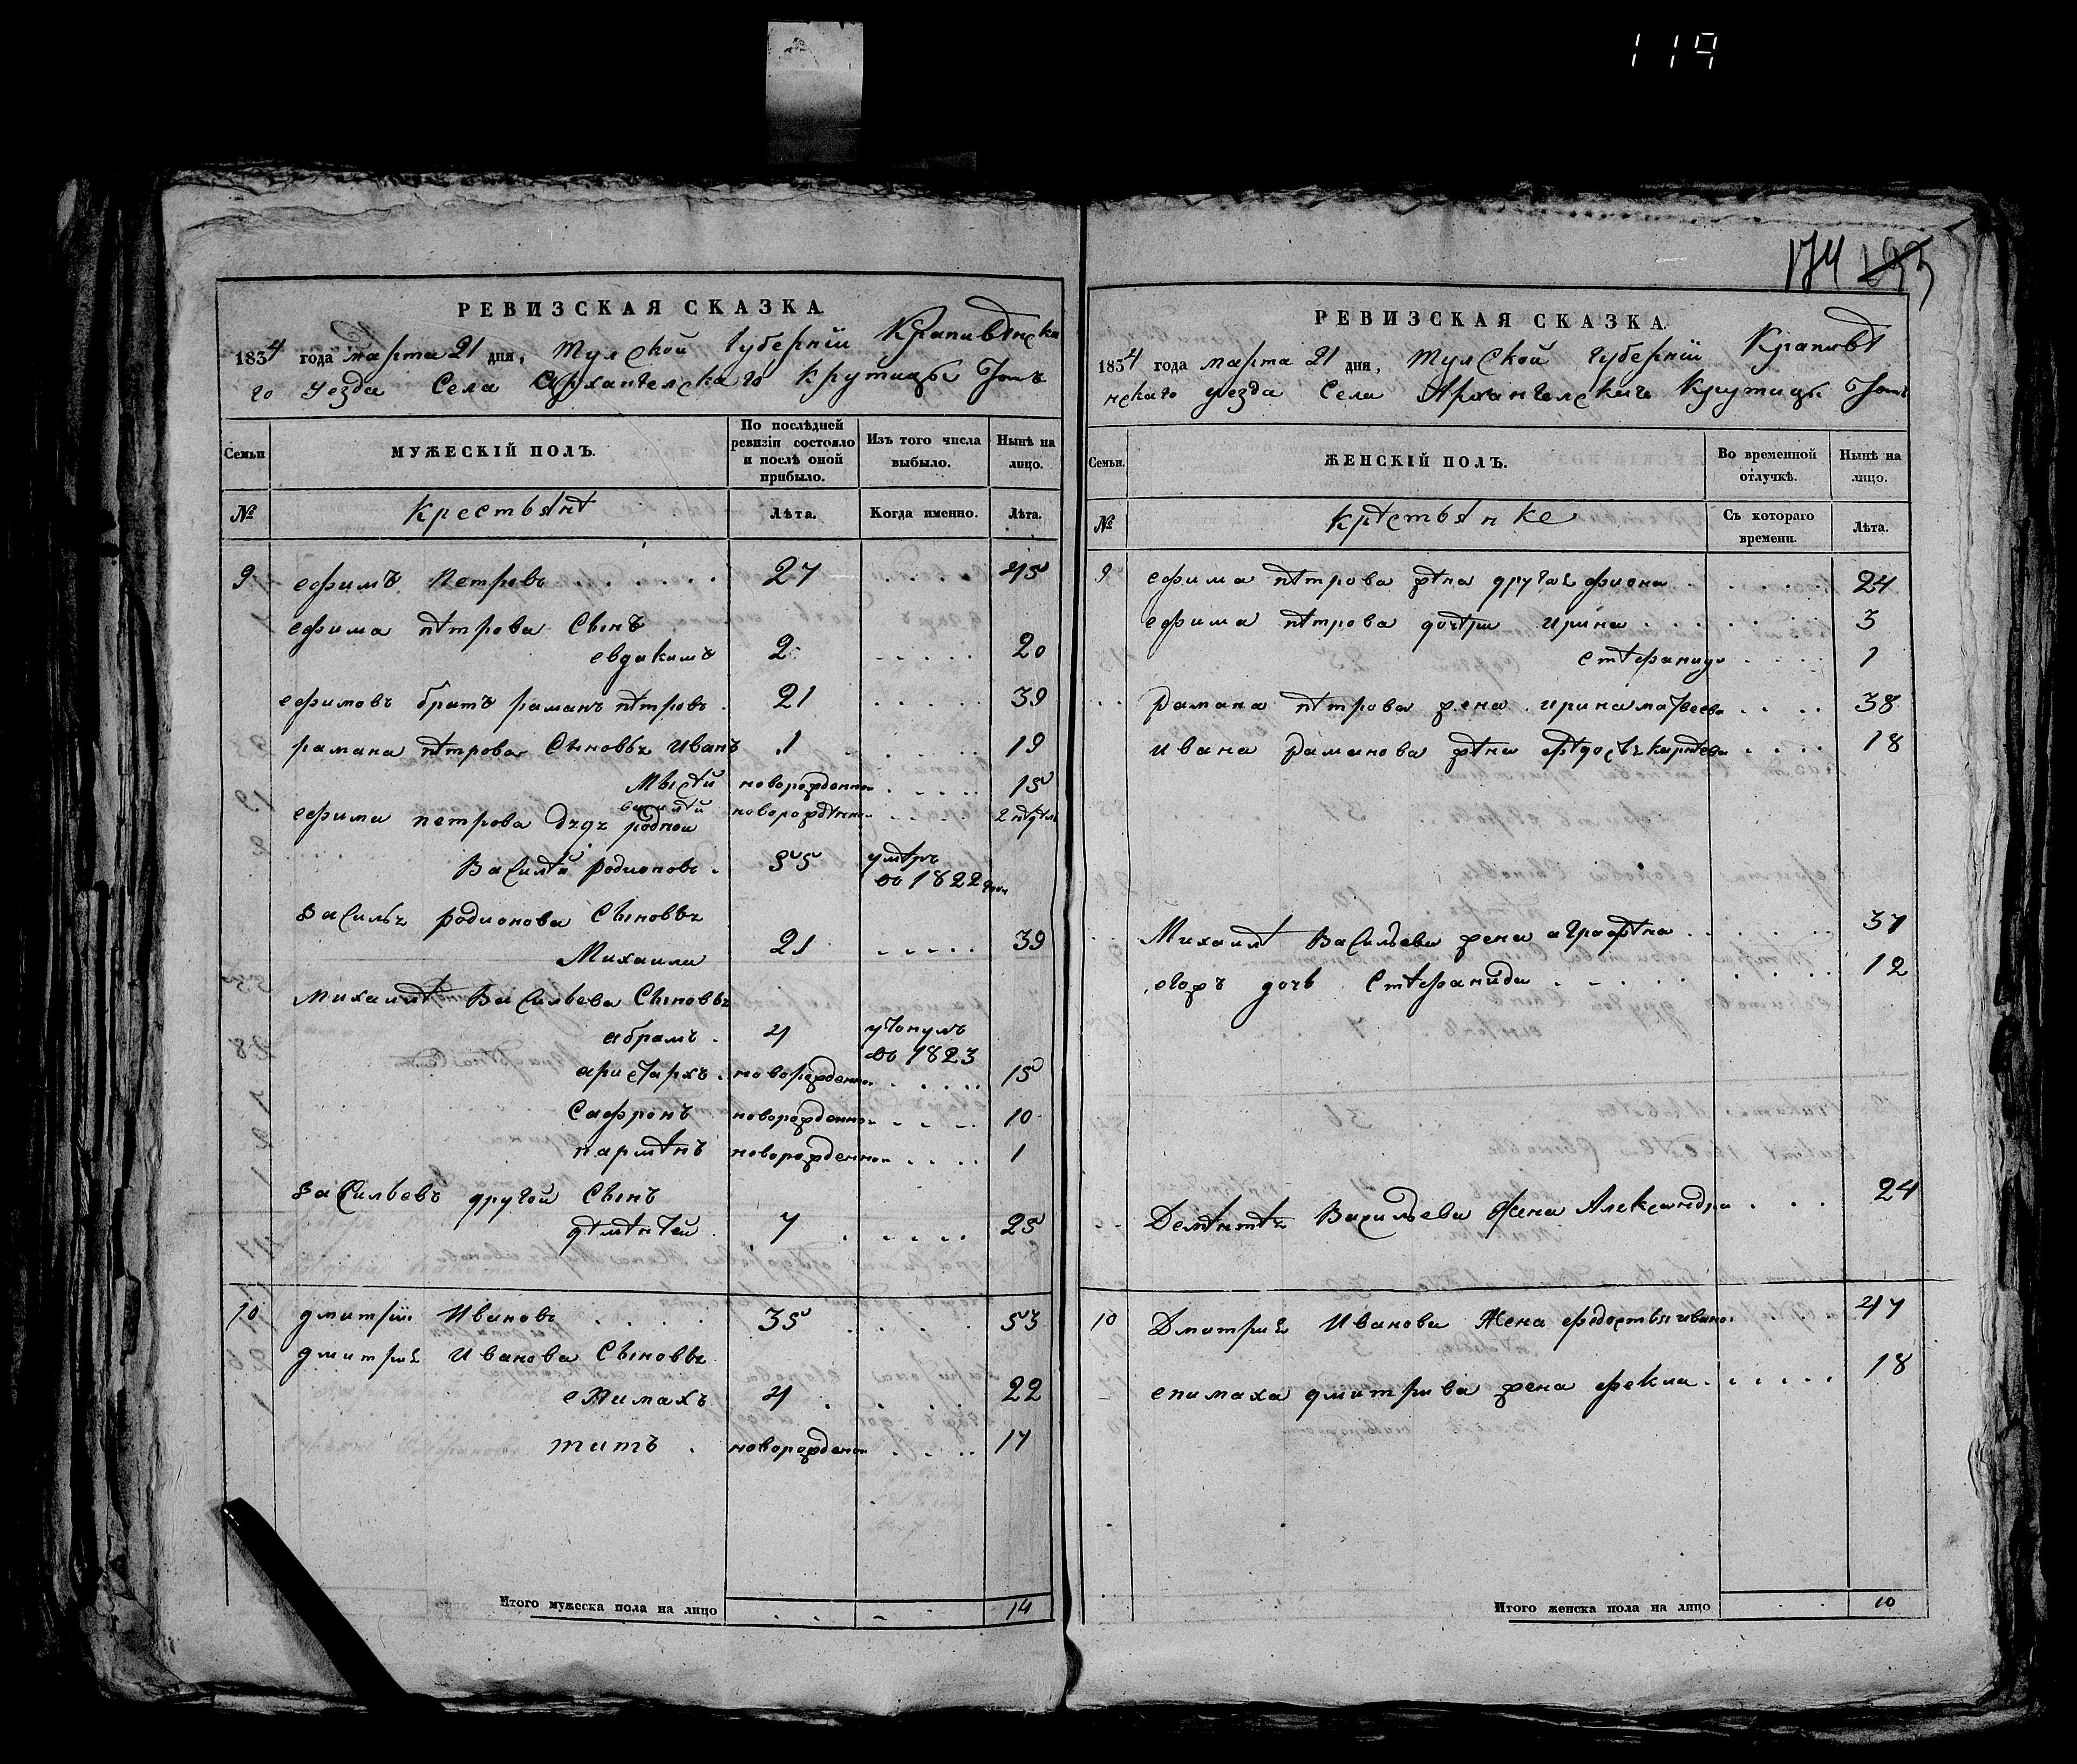 119
174
РЕВИЗСКАЯ СКАЗКА.
1834 года марта 21 дня, Тулской Губернїи Крапивѣнска
го уезда Села Архангелскаго Крутицы Тожъ
Семьи
МУЖЕСКІЙ ПОЛЪ.
По послѣдней ревизіи состояло и послѣ оной прибыло.
Изъ того числа выбыло.
Нынѣ на лицо.
№
Крестьянѣ
Лѣта.
Когда именно.
Лѣта.
9 ефимъ Петровъ 27 45
ефима пѣтрова Сынъ
евдакимъ 2 20
ефимовъ братъ раманъ пѣтровъ 21 39
рамана пѣтрова Сыновья иванъ 1 19
Мысѣй новорожденной 15
василѣй новорождѣнной 2 нѣдѣли
ефима петрова дядя родной
Василѣй родионовъ 55 умѣръ
во 1822 году
Василья родионова Сыновья
Михаила 21 39
Михаилѣ Васильева Сыновья
абрамъ 4 утонулъ
во 1823
аристархъ новорожденной 15
Сафронъ новорожденной 10
пармѣнъ новорожденной 1
Васильевъ другой Сынъ
дѣмѣнтей 7 25
10 дмитрїи Ивановъ 35 53
дмитрия Иванова Сыновья
епимахъ 4 22
титъ новорожденой 17
Итого мужеска пола на лицо 14
РЕВИЗСКАЯ СКАЗКА.
1834 года марта 21 дня, Тулской губернїи Крапивѣ
нскаго уезда Села Архангелскаго Крутицы Тожъ
Семьи.
ЖЕНСКІЙ ПОЛЪ.
Во временной отлучкѣ.
Нынѣ на лицо.
№
Крѣстьянке
Съ котораго времени.
Лѣта.
9 ефима пѣтрова жѣна другая фиона 24
ефима пѣтрова дочери ирина 3
стѣфанида 1
рамана пѣтрова жена ирина матвеева 38
ивана раманова жѣна фѣдосья карпѣева 18
Михаилѣ Васильева жена аграфѣна 37
еворъ дочь Стѣфанида 12
Демѣнтѣя Васильева Жена Александра 24
10 Дмитрия Иванова Жена федостья иванова 47
епимаха дмитрива жена фекла 18
Итого женска пола на лицо 10